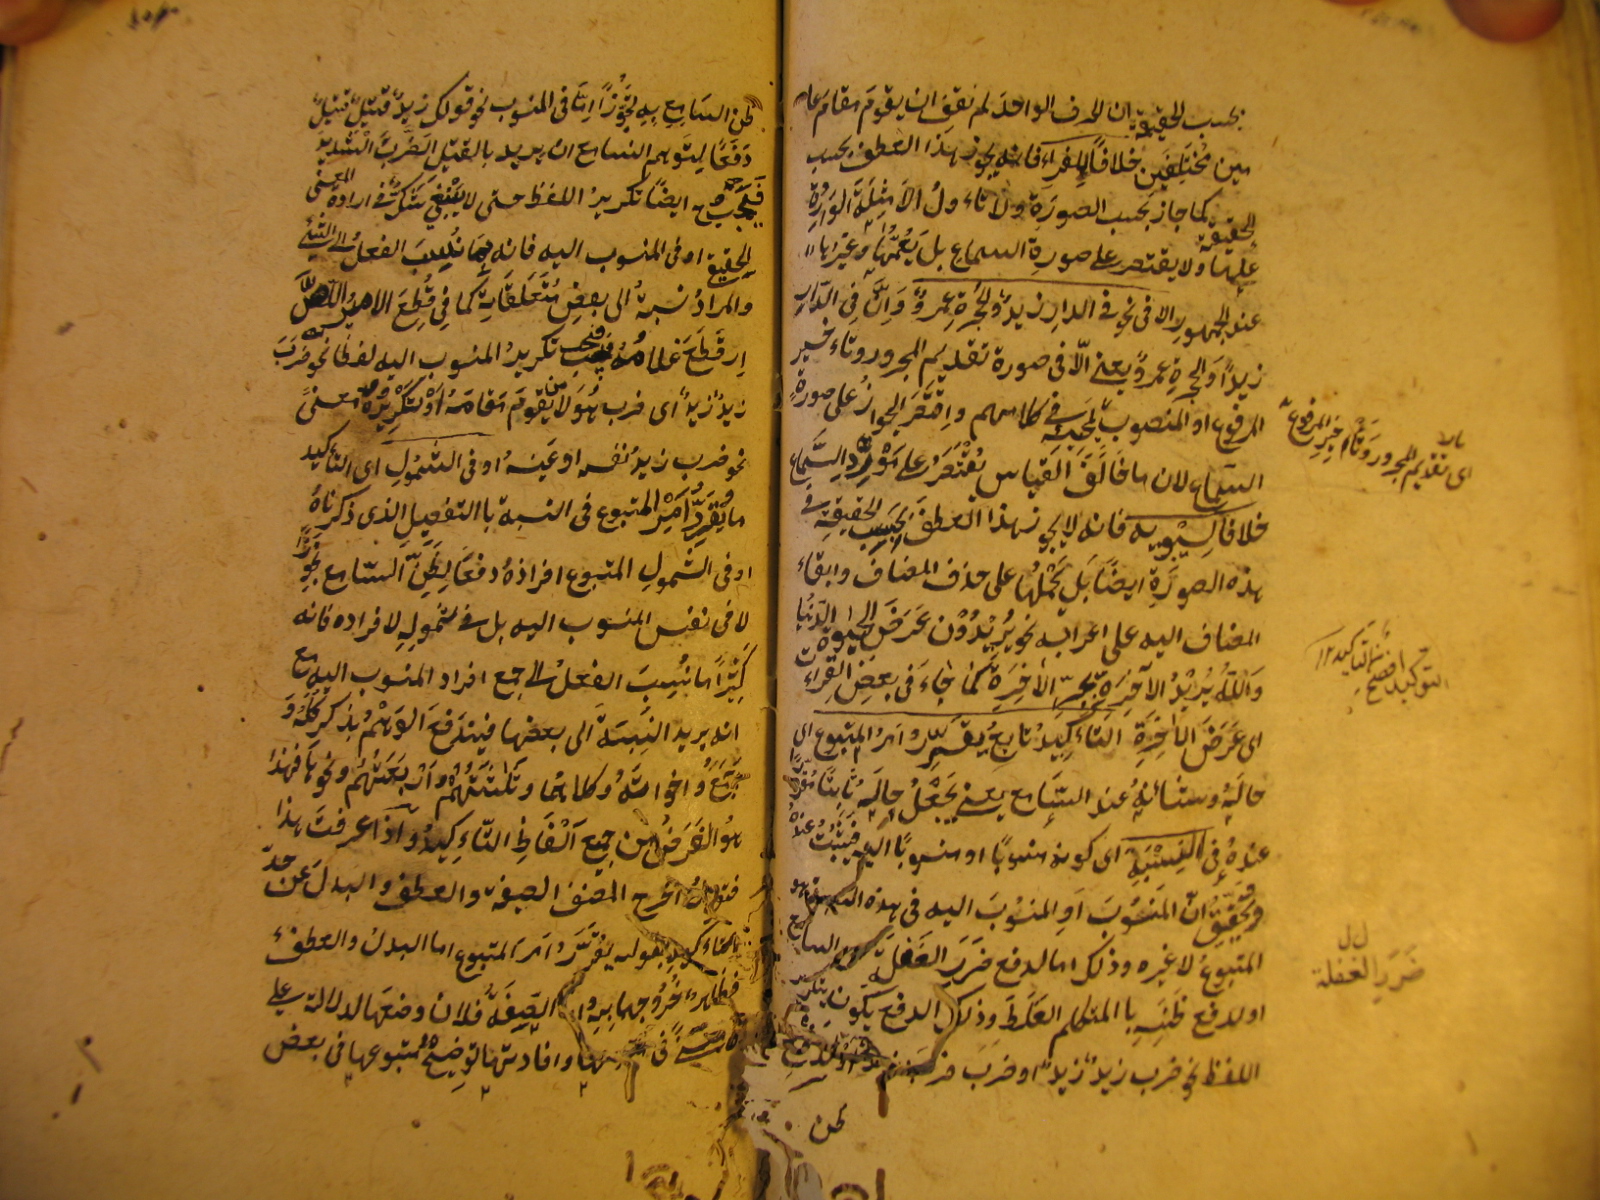 بحسب الحقيقة ان الحرف الواحد لم نقف ان يقوم مقام عا
ملين مختلفين خلافا للفراء فانه يجوز هذا العطف بحسب
الحقيقة كما جاز بحسب الصورة ولا تأول الامثلة الواردة
عليها ولا يقتصر على صورة السماع بل يعمها وغيرها
عند الجمهور الا في نحو في الدار زيد والحجرة عمرو وان في الدار
زيدا والحجرة عمرو يعني الا في صورة تقديم المجرور وتأخير
المرفوع او المنصوب لمجيئه في كلامهم واقتصر الجواز على صورة
السماع لان ما خالف القياس يقتصر على مورد السماع
خلافا لسيبويه فانه لا يجوز هذا العطف بحسب الحقيقة في
هذه الصورة ايضا بل يحملها على حذف المضاف وابقاء
المضاف اليه على اعرابه نحو يريدون عرض الحيوة الدنيا
والله يريد الآخرة بجر الآخرة كما جاء في بعض القراء
اى عرض الآخرة التأكيد تابع يقرر امر المتبوع اى
حاله وشأنه عند السامع يعني يجعل حاله ثابتا مقررا
عنده في النسبة اى كونه منسوبا او منسوبا اليه فيثبت عنده
ويحقق ان المنسوب او المنسوب اليه في هذه النسبة هو
المتبوع لا غيره وذلك اما لدفع ضرر الغفلة السامع
او لدفع ظنه با المتكلم الغلط وذلك الدفع يكون بتكرير
اللفظ نحو ضرب زيد زيد او ضرب ضرب او لدفع
ظن
اى تقديم المجرور وتأخير المرفوع
التوكيد افصح من التأكيد ١٢
ضرر الغفلة
ظن السامع به تجوزا اما في المنسوب نحو قولك زيد قتيل قتيل
دفعا ليتوهم السامع ان يريد بالقتل الضرب الشديد
فيجب ايضا تكرير اللفظ حتى لا يبقى شك في ارادة المعنى
الحقيقي او في المنسوب اليه فانه ربما نسب الفعل الى الشيء
والمراد نسبة الى بعض متعلقاته كما في قطع الامير اللص
اى قطع غلامه فيجب تكرير المنسوب اليه لفظا نحو ضرب
زيد زيد اى ضرب هو لا من يقوم مقامه او تكريره معنى
نحو ضرب زيد نفسه او عينه او في الشمول اى التأكيد
ما يقرر امر المتبوع في النسبة با التفصيل الذى ذكرناه
او في الشمول المتبوع افراده دفعا لظن السامع تجوزا
لا في نفس المنسوب اليه بل في شموله لافراده فانه
كثيرا ما ينسب الفعل الى جمع افراد المنسوب اليه مع
انه يريد النسبة الى بعضها فيندفع الوهم بذكر كله و
اجمع واخواته وكلاهما وثلثتهم واربعتهم ونحوها فهذا
هو الغرض من جميع الفاظ التأكيد واذا عرفت هذا
فنقول اخرج المصنف الصفة والعطف والبدل عن حد
التأكيد بقوله يقرر امر المتبوع اما البدل والعطف
فظاهر خروجهما به واما الصفة فلان وضعها لدلالة على
معنى في متبوعها وافادتها توضيح متبوعها في بعض